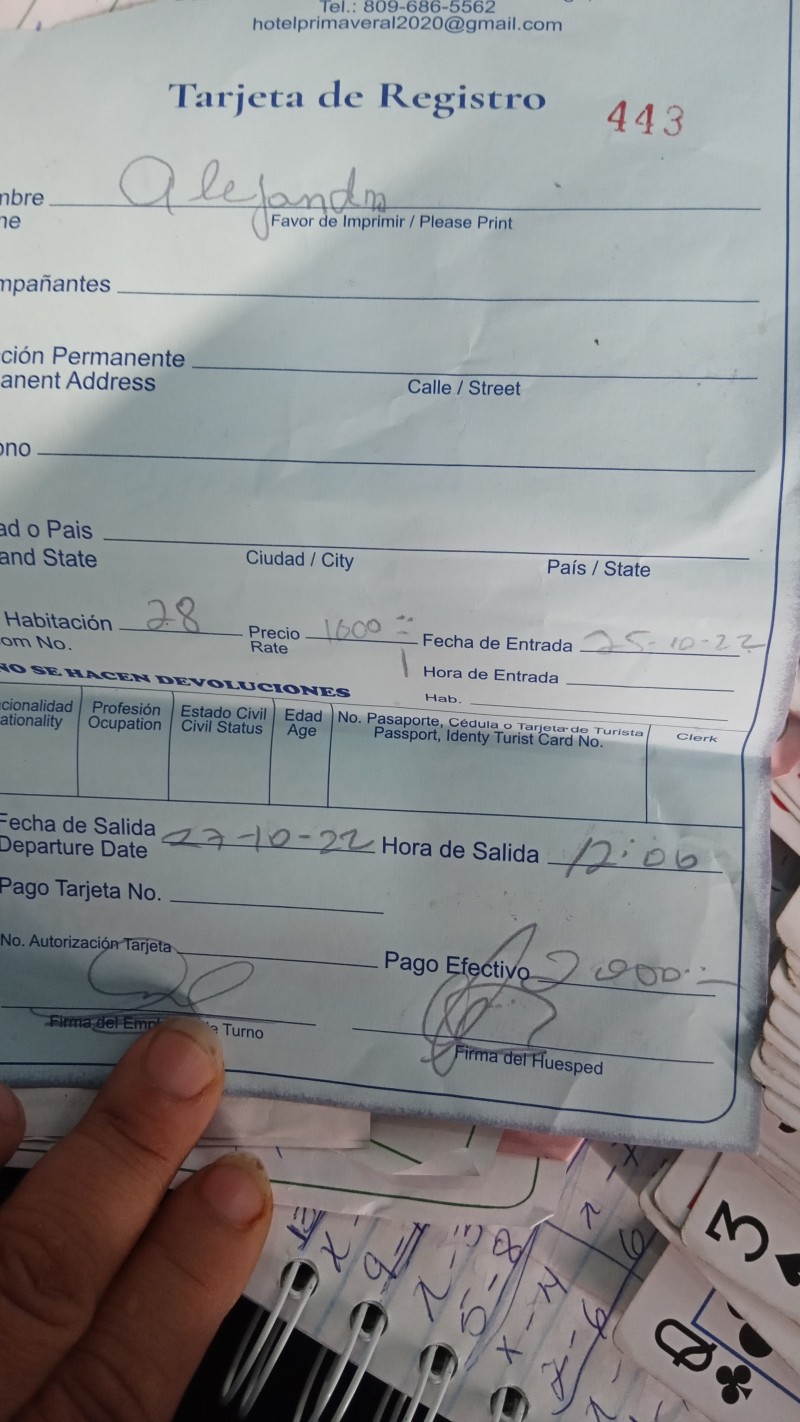 Tel.: 809-686-5562
hotelprimaveral2020@gmail.com
Tarjeta de Registro 443
mbre Alejandro
me Favor de Imprimir / Please Print
mpañantes
ción Permanente
anent Address Calle / Street
ono
ad o Pais
and State Ciudad / City País / State
Habitación 28 Precio 1600 Fecha de Entrada 25-10-22
om No. Rate Hora de Entrada
NO SE HACEN DEVOLUCIONES Hab.
cionalidad Profesión Estado Civil Edad No. Pasaporte, Cédula o Tarjeta de Turista Clerk
ationality Ocupation Civil Status Age Passport, Identy Turist Card No.
Fecha de Salida 27-10-22 Hora de Salida 12:06
Departure Date
Pago Tarjeta No.
No. Autorización Tarjeta Pago Efectivo 2000
Firma del Turno Firma del Huesped
3
Q